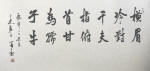 橫眉
冷對
千夫
指俯
首甘
為孺
子牛